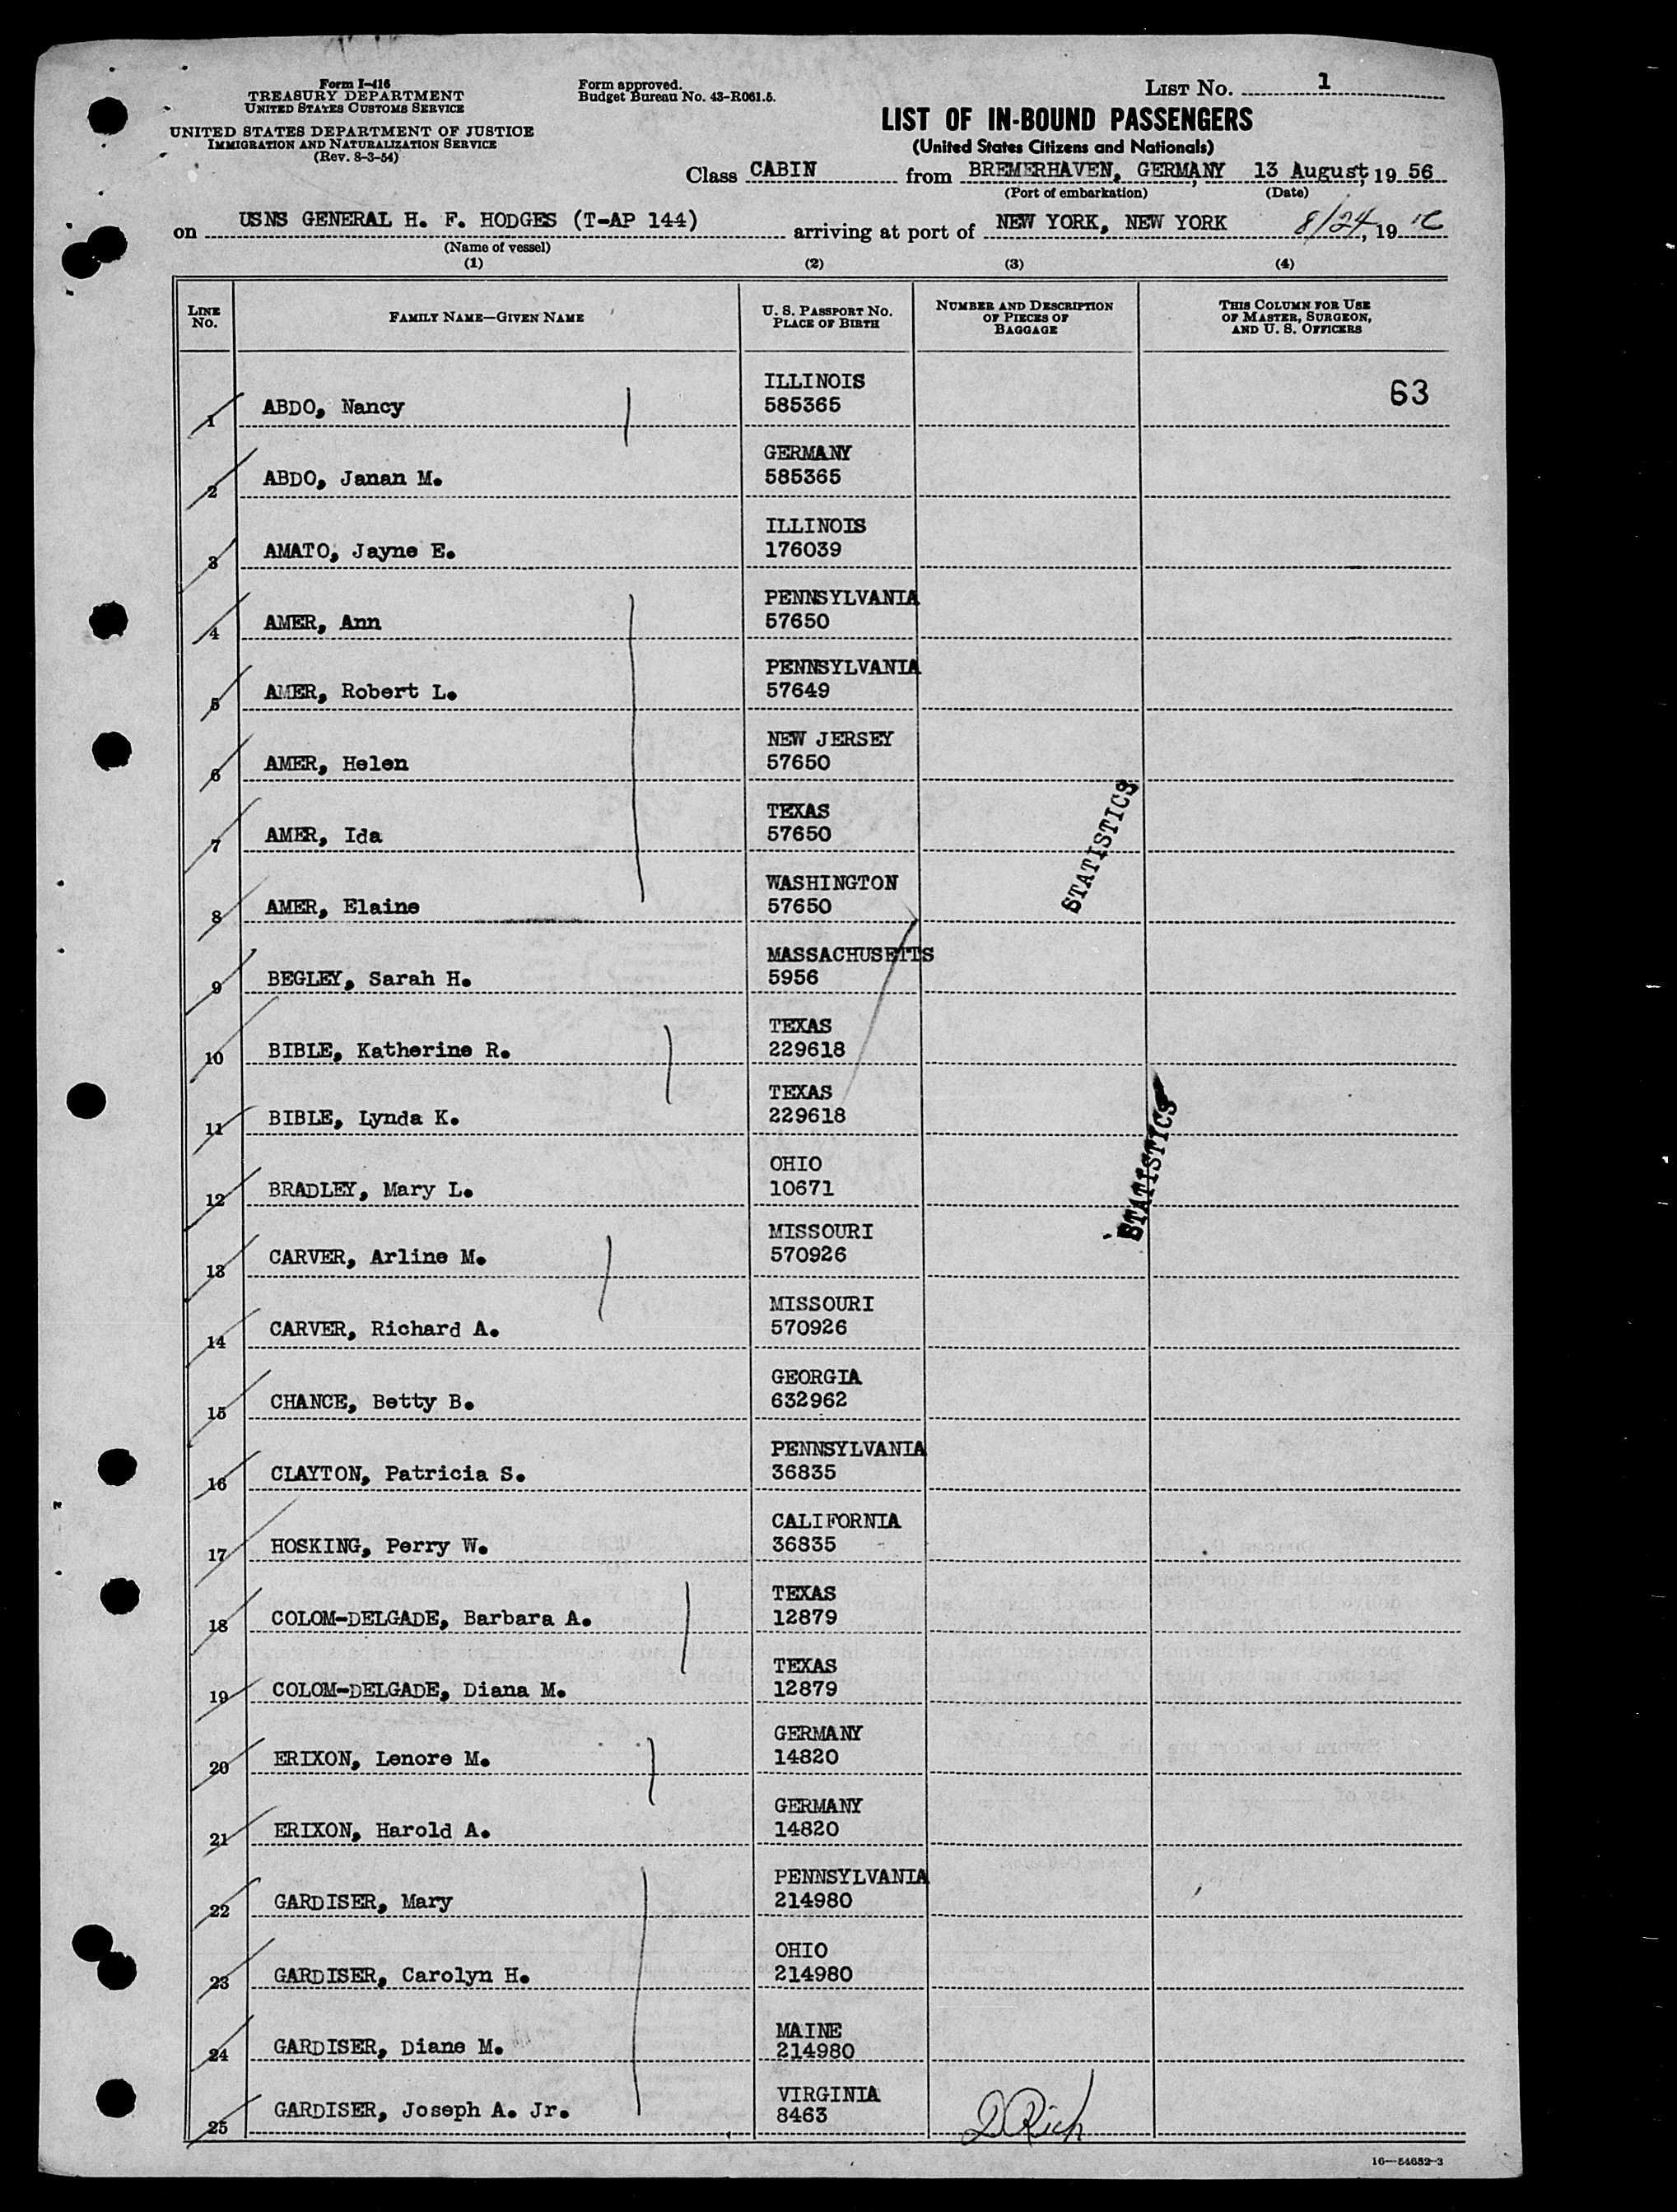 Form I-416
TREASURY DEPARTMENT
UNITED STATES CUSTOMS SERVICE
UNITED STATES DEPARTMENT OF JUSTICE
IMMIGRATION AND NATURALIZATION SERVICE
(Rev. 8-3-54)
Form approved.
Budget Bureau No. 43-R061.5.
LIST NO. 1
LIST OF IN-BOUND PASSENGERS
(United States Citizens and Nationals)
Class CABIN from BREMERHAVEN, GERMANY, 13 August, 19 56
(Port of embarkation) (Date)
on USNS GENERAL H. F. HODGES (T-AP 144) arriving at port of NEW YORK, NEW YORK 8/24, 19
(Name of vessel)
(1) (2) (3) (4)
LINE NO. FAMILY NAME—GIVEN NAME U. S. PASSPORT NO. PLACE OF BIRTH NUMBER AND DESCRIPTION OF PIECES OF BAGGAGE THIS COLUMN FOR USE OF MASTER, SURGEON, AND U. S. OFFICERS
63
ILLINOIS
1 ABDO, Nancy 585365
GERMANY
2 ABDO, Janan M. 585365
ILLINOIS
3 AMATO, Jayne E. 176039
PENNSYLVANIA
4 AMER, Ann 57650
PENNSYLVANIA
5 AMER, Robert L. 57649
NEW JERSEY
6 AMER, Helen 57650
TEXAS
7 AMER, Ida 57650
STATISTICS
WASHINGTON
8 AMER, Elaine 57650
MASSACHUSETTS
9 BEGLEY, Sarah H. 5956
TEXAS
10 BIBLE, Katherine R. 229618
TEXAS
11 BIBLE, Lynda K. 229618
STATISTICS
OHIO
12 BRADLEY, Mary L. 10671
MISSOURI
13 CARVER, Arline M. 570926
MISSOURI
14 CARVER, Richard A. 570926
GEORGIA
15 CHANCE, Betty B. 632962
PENNSYLVANIA
16 CLAYTON, Patricia S. 36835
CALIFORNIA
17 HOSKING, Perry W. 36835
TEXAS
18 COLOM-DELGADE, Barbara A. 12879
TEXAS
19 COLOM-DELGADE, Diana M. 12879
GERMANY
20 ERIXON, Lenore M. 14820
GERMANY
21 ERIXON, Harold A. 14820
PENNSYLVANIA
22 GARDISER, Mary 214980
OHIO
23 GARDISER, Carolyn H. 214980
MAINE
24 GARDISER, Diane M. 214980
VIRGINIA
25 GARDISER, Joseph A. Jr. 8463
D Rich
16—54652-3